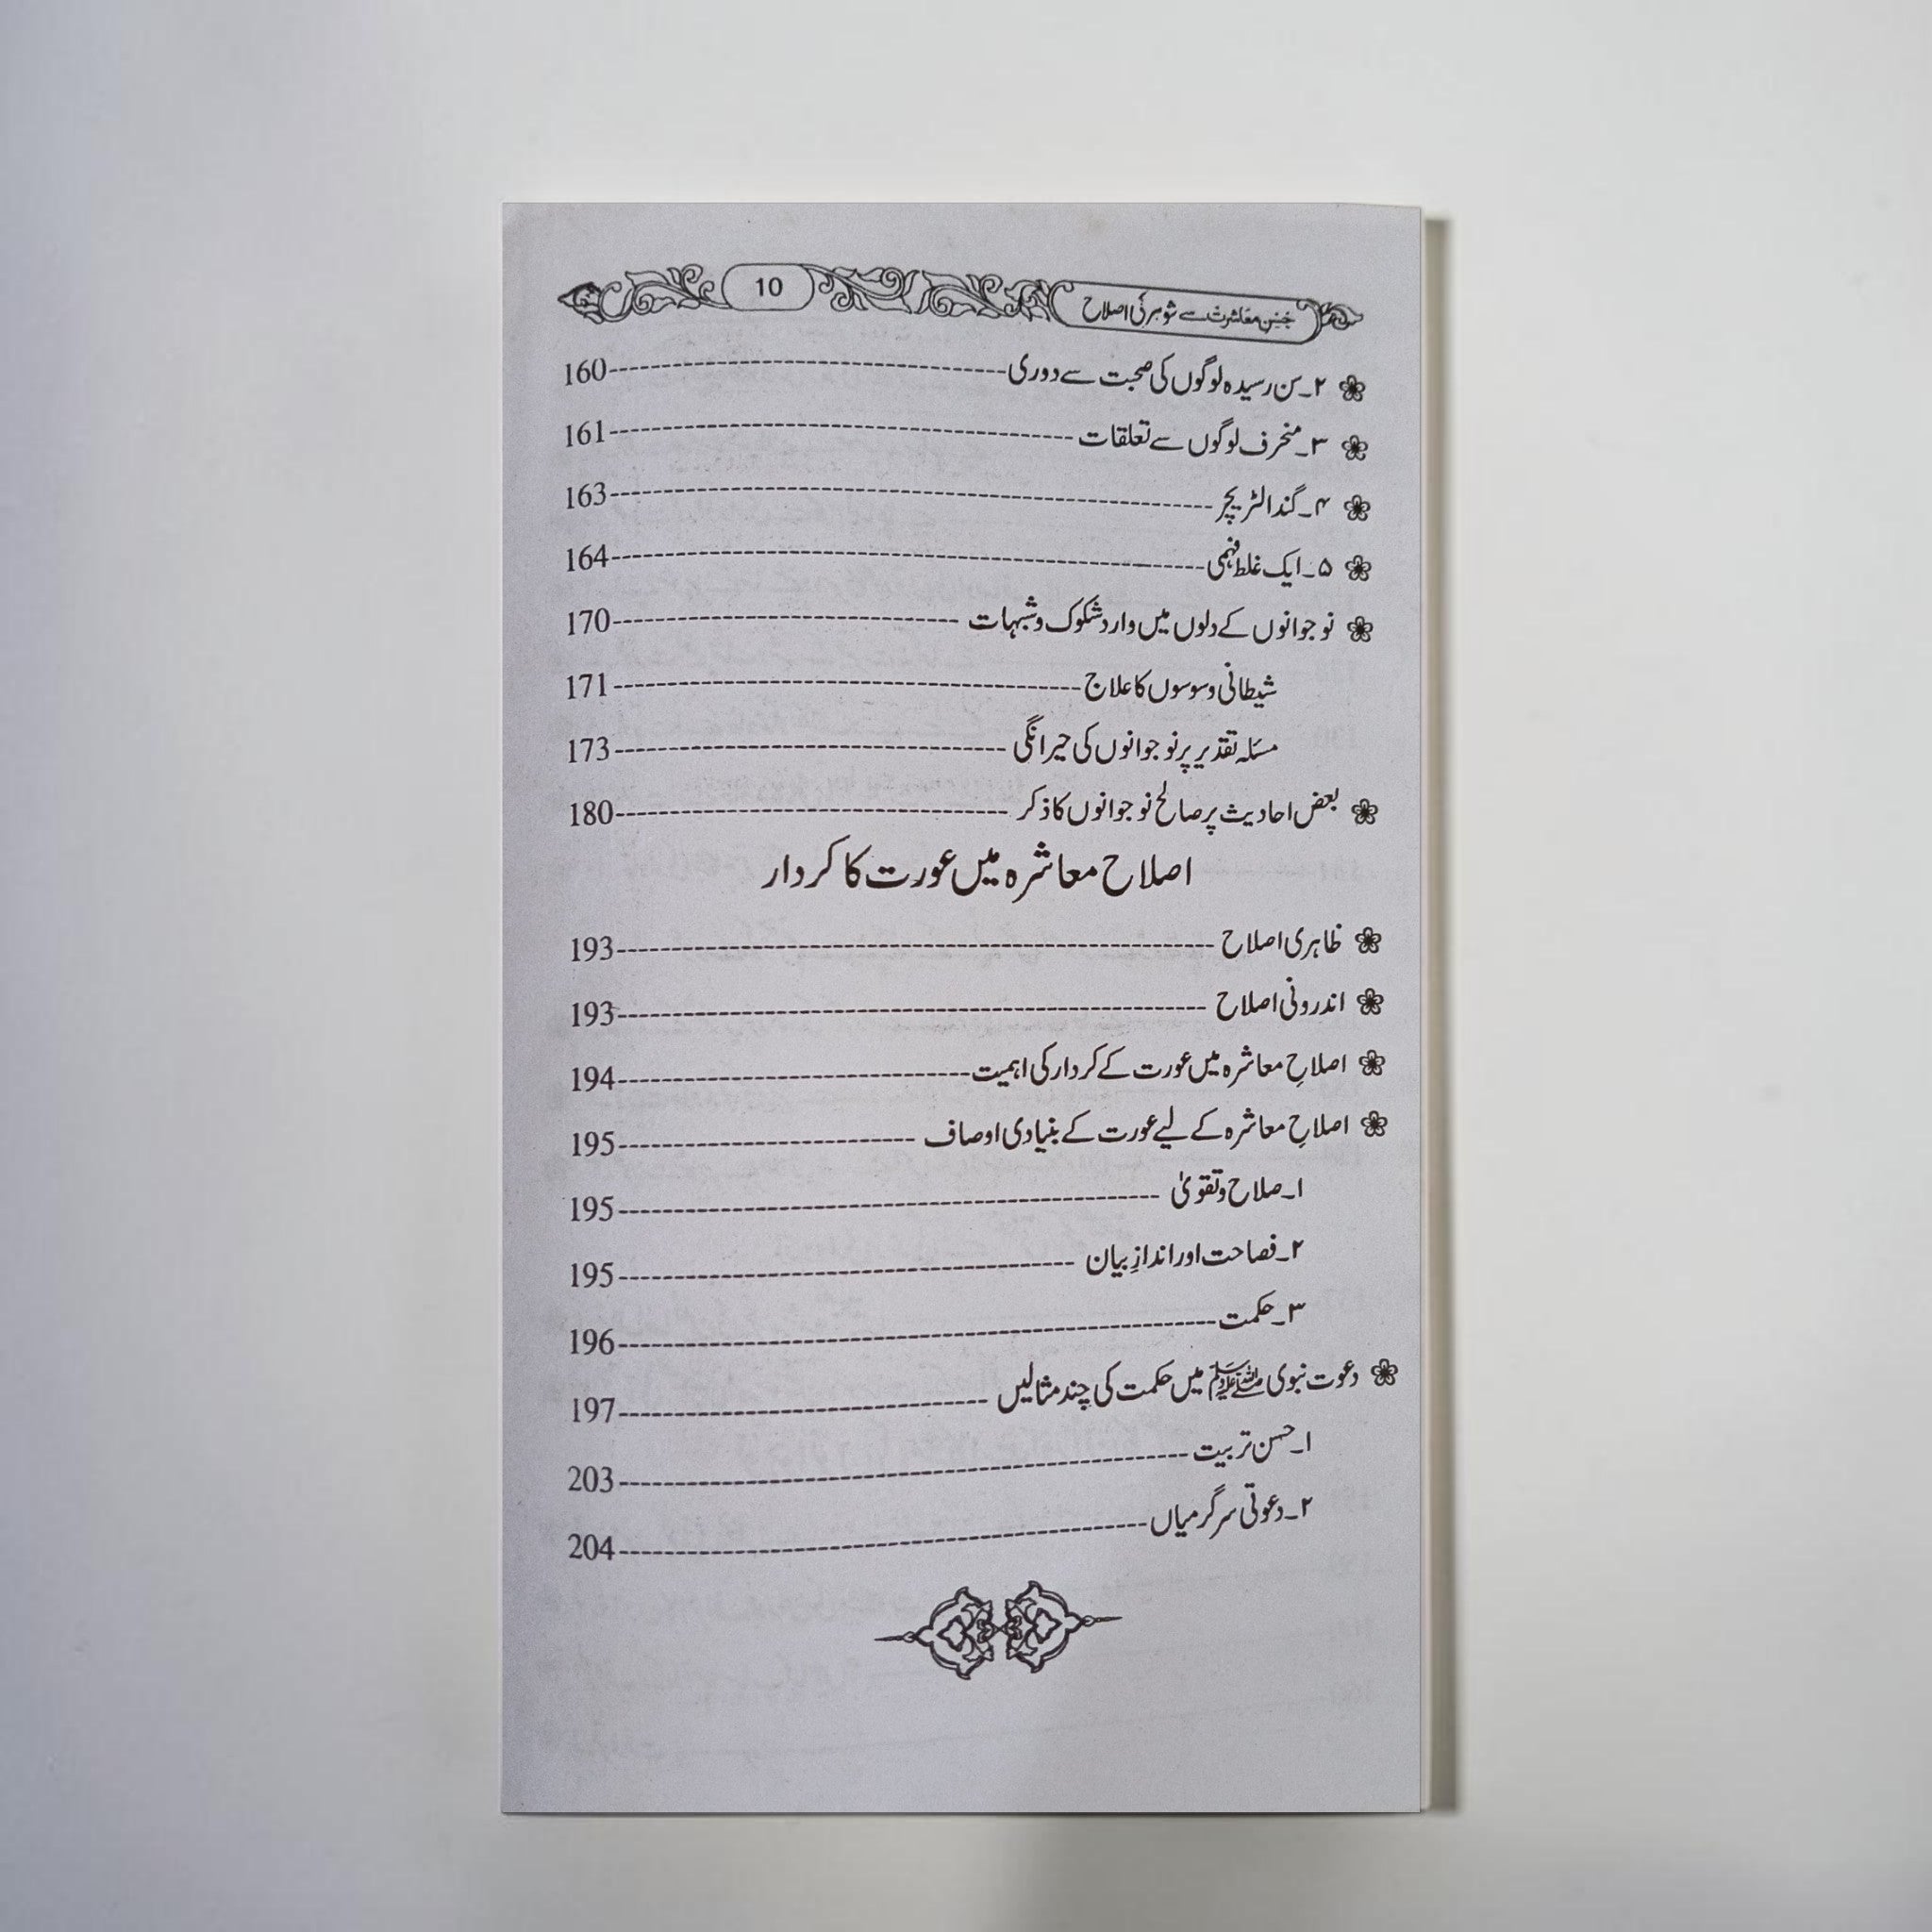 حسنِ معاشرت سے شوہر کی اصلاح 10
۲۔ سن رسیدہ لوگوں کی صحبت سے دوری ---------- 160
۳۔ منحرف لوگوں سے تعلقات ---------- 161
۴۔ گندا لٹریچر ---------- 163
۵۔ ایک غلط فہمی ---------- 164
نوجوانوں کے دلوں میں وارد شکوک و شبہات ---------- 170
شیطانی وسوسوں کا علاج ---------- 171
مسئلہ تقدیر پر نوجوانوں کی حیرانگی ---------- 173
بعض احادیث پر صالح نوجوانوں کا ذکر ---------- 180
اصلاح معاشرہ میں عورت کا کردار
ظاہری اصلاح ---------- 193
اندرونی اصلاح ---------- 193
اصلاحِ معاشرہ میں عورت کے کردار کی اہمیت ---------- 194
اصلاحِ معاشرہ کے لیے عورت کے بنیادی اوصاف ---------- 195
۱۔ صلاح و تقویٰ ---------- 195
۲۔ فصاحت اور اندازِ بیان ---------- 195
۳۔ حکمت ---------- 196
دعوت نبوی ﷺ میں حکمت کی چند مثالیں ---------- 197
۱۔ حسن تربیت ---------- 203
۲۔ دعوتی سرگرمیاں ---------- 204